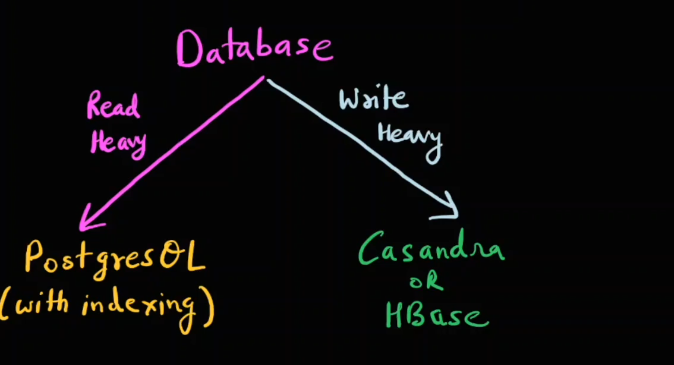 Database
Read
Heavy
Write
Heavy
PostgresQL
(with indexing)
Casandra
OR
HBase